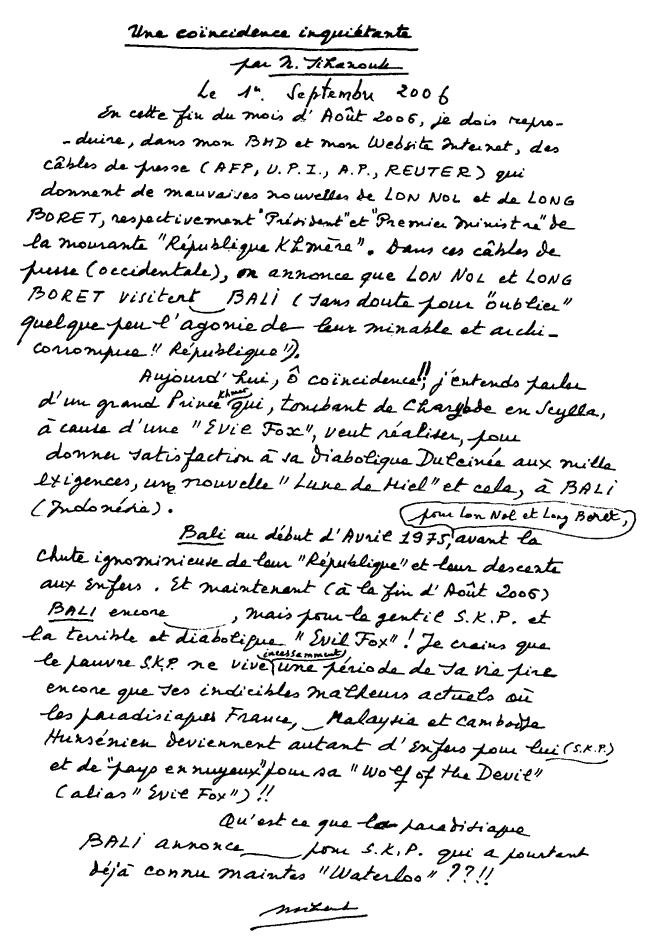 Une coïncidence inquiétante
par N. Sihanouk
Le 1er. Septembre 2006
En cette fin du mois d'Août 2006, je dois repro-
-duire, dans mon BHD et mon Website Internet, des
câbles de presse (AFP, U.P.I., A.P., REUTER) qui
donnent de mauvaises nouvelles de LON NOL et de LONG
BORET, respectivement "Président" et "Premier Ministre" de
la mourante "République Khmère". Dans ces câbles de
presse (occidentale), on annonce que LON NOL et LONG
BORET visitent BALI (sans doute pour "oublier"
quelque peu l'agonie de leur minable et archi-
corrompue "République").
Aujourd'hui, Ô coïncidence!!, j'entends parler
d'un grand Prince Khmer qui, tombant de Charybde en Scylla,
à cause d'une "Evil Fox", veut réaliser, pour
donner satisfaction à sa diabolique Dulcinée aux mille
exigences, une nouvelle "Lune de Miel" et cela, à BALI
(Indonésie).
Bali au début d'Avril 1975, pour Lon Nol et Long Boret, avant la
chute ignominieuse de leur "République" et leur descente
aux Enfers. Et maintenant (à la fin d'Août 2006)
BALI encore , mais pour le gentil S.K.P. et
la terrible et diabolique "Evil Fox"! Je crains que
le pauvre S.K.P. ne vive incessamment une période de sa vie pire
encore que ses indicibles malheurs actuels où
les paradisiaques France, Malaysia et Cambodge
Hunsénien deviennent autant d'Enfers pour lui (S.K.P.)
et de "pays ennuyeux" pour sa "Wolf of the Devil"
(alias "Evil Fox")!!
Qu'est ce que la paradisiaque
BALI annonce pour S.K.P. qui a pourtant
déjà connu maintes "Waterloo"??!!